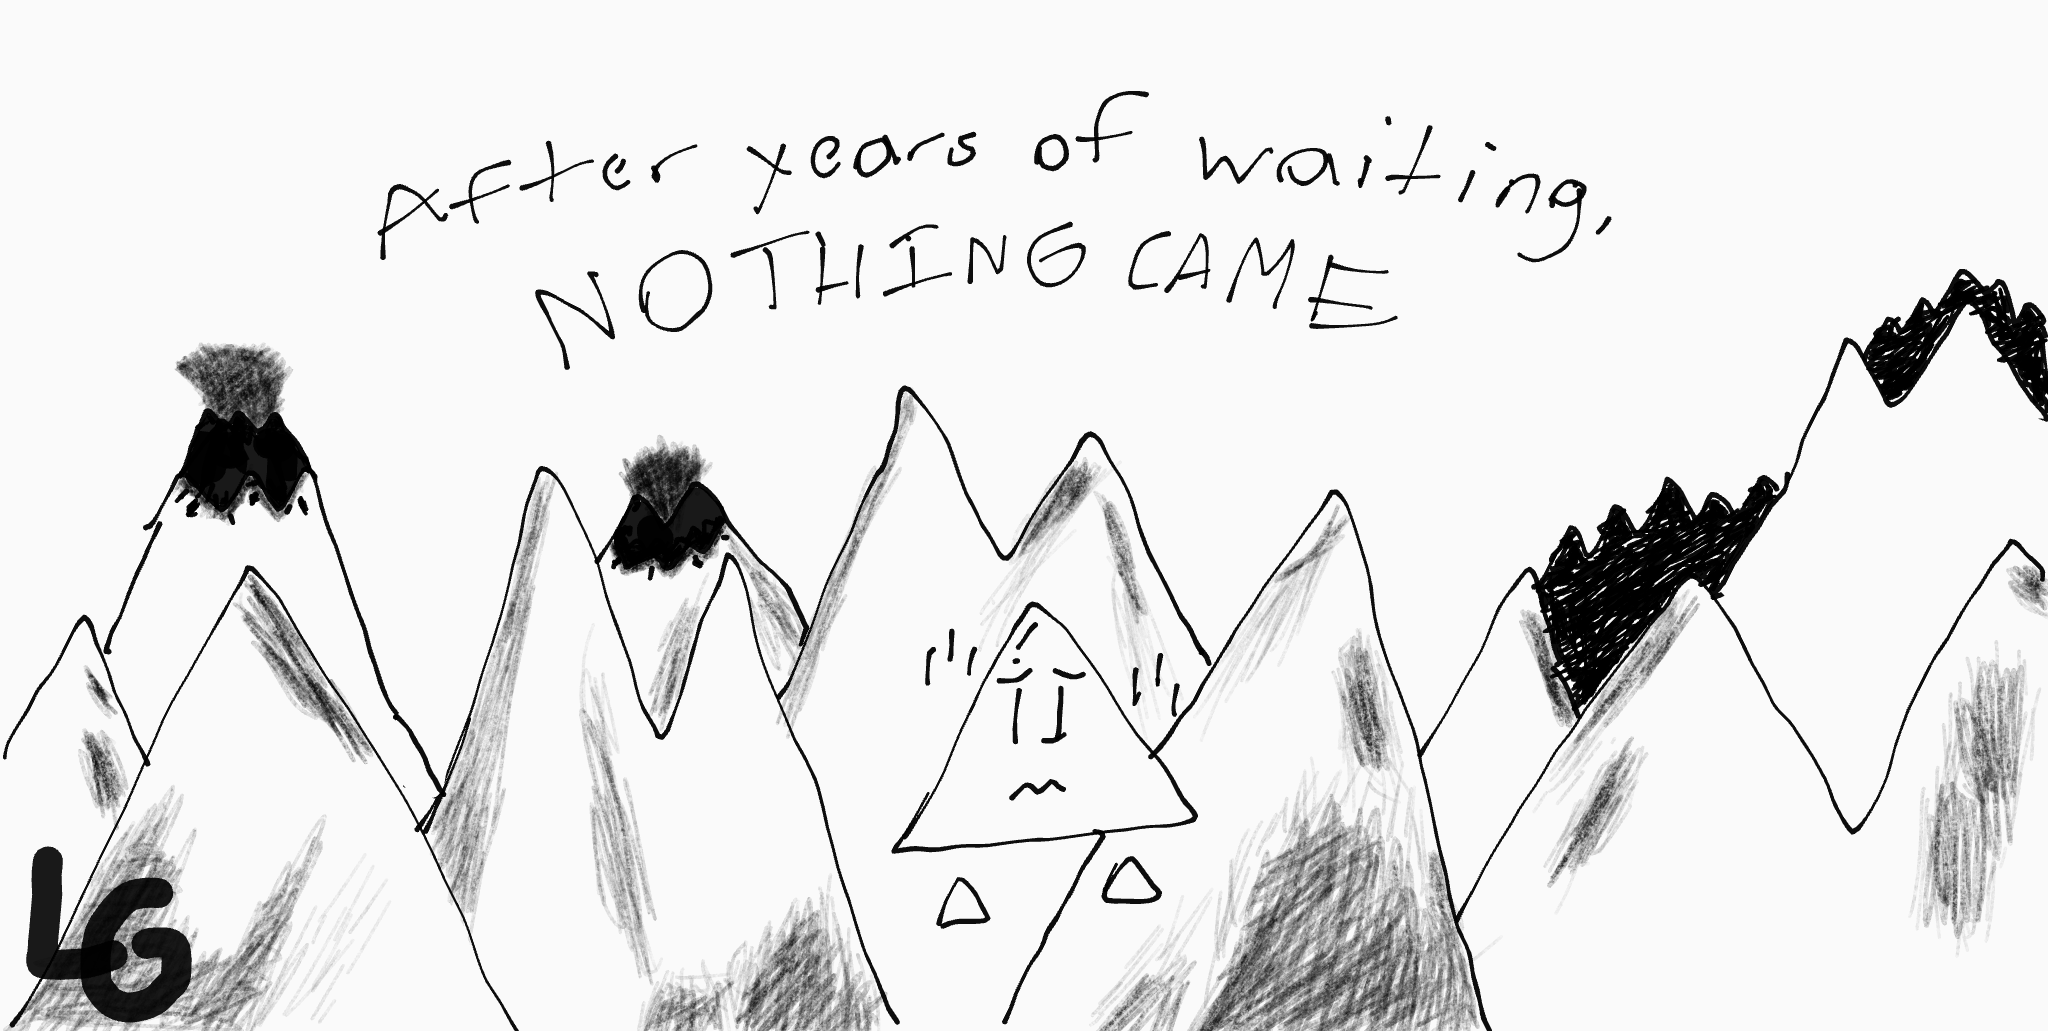 After years of waiting,
NOTHING CAME
LG